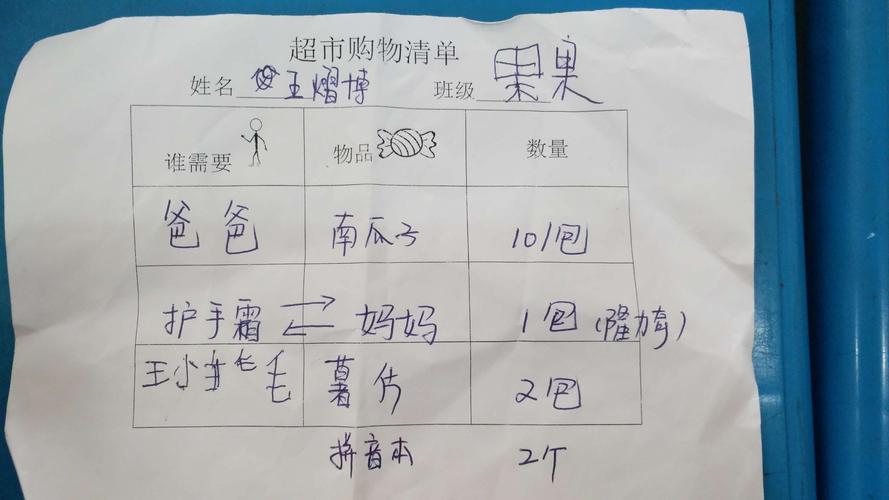 超市购物清单
姓名 王熠博 班级 果果
谁需要 物品 数量
爸爸 南瓜子 10包
护手霜 妈妈 1包(隆力奇)
王小 毛 薯片 2包
拼音本 2个